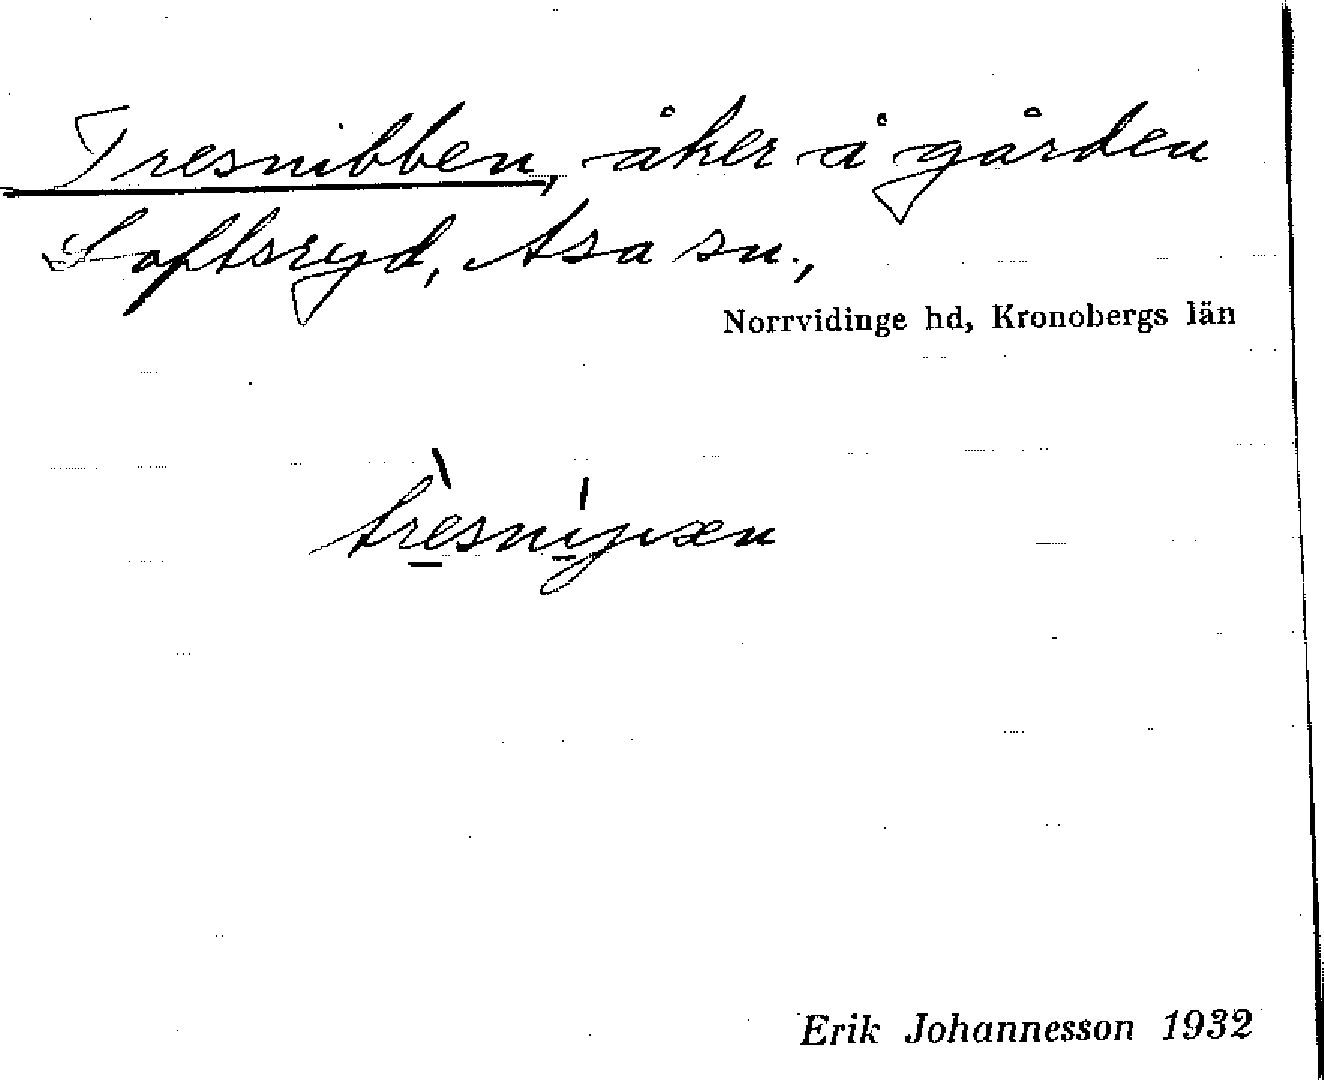 Tresnibben, åker å gården
Loftsryd, Asa sn.,
Norrvidinge hd, Kronobergs län
Erik Johannesson 1932